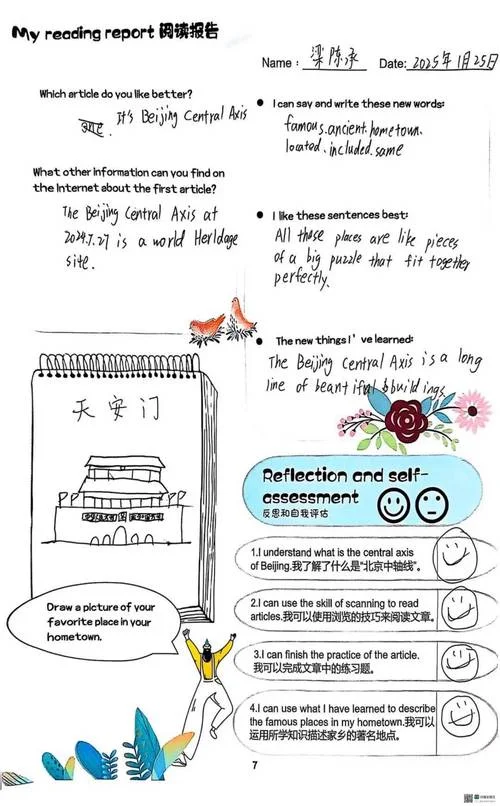 My reading report 阅读报告
Name: 梁陈承 Date: 2025年1月25日
Which article do you like better?
one. It's Beijing Central Axis
What other information can you find on
the Internet about the first article?
The Beijing Central Axis at
2024.7.27 is a world Herldage
site.
I can say and write these new words:
famous.ancient.hometown.
located.included.same
I like these sentences best:
All those places are like pieces
of a big puzzle that fit together
perfectly.
The new things I've learned:
The Beijing Central Axis is a long
line of beantiful bbuildings.
天安门
Draw a picture of your
favorite place in your
hometown.
Reflection and self-
assessment
反思和自我评估
1.I understand what is the central axis
of Beijing.我了解了什么是“北京中轴线”。
2.I can use the skill of scanning to read
articles.我可以使用浏览的技巧来阅读文章。
3.I can finish the practice of the article.
我可以完成文章中的练习题。
4.I can use what I have learned to describe
the famous places in my hometown.我可以
运用所学知识描述家乡的著名地点。
7